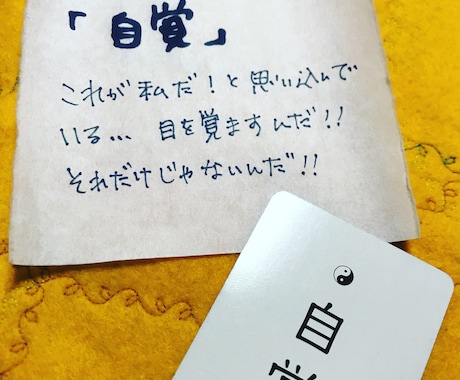 「自覚」
これが私だ！と思い込んで
いる... 目を覚ますんだ!!
それだけじゃないんだ!!
自